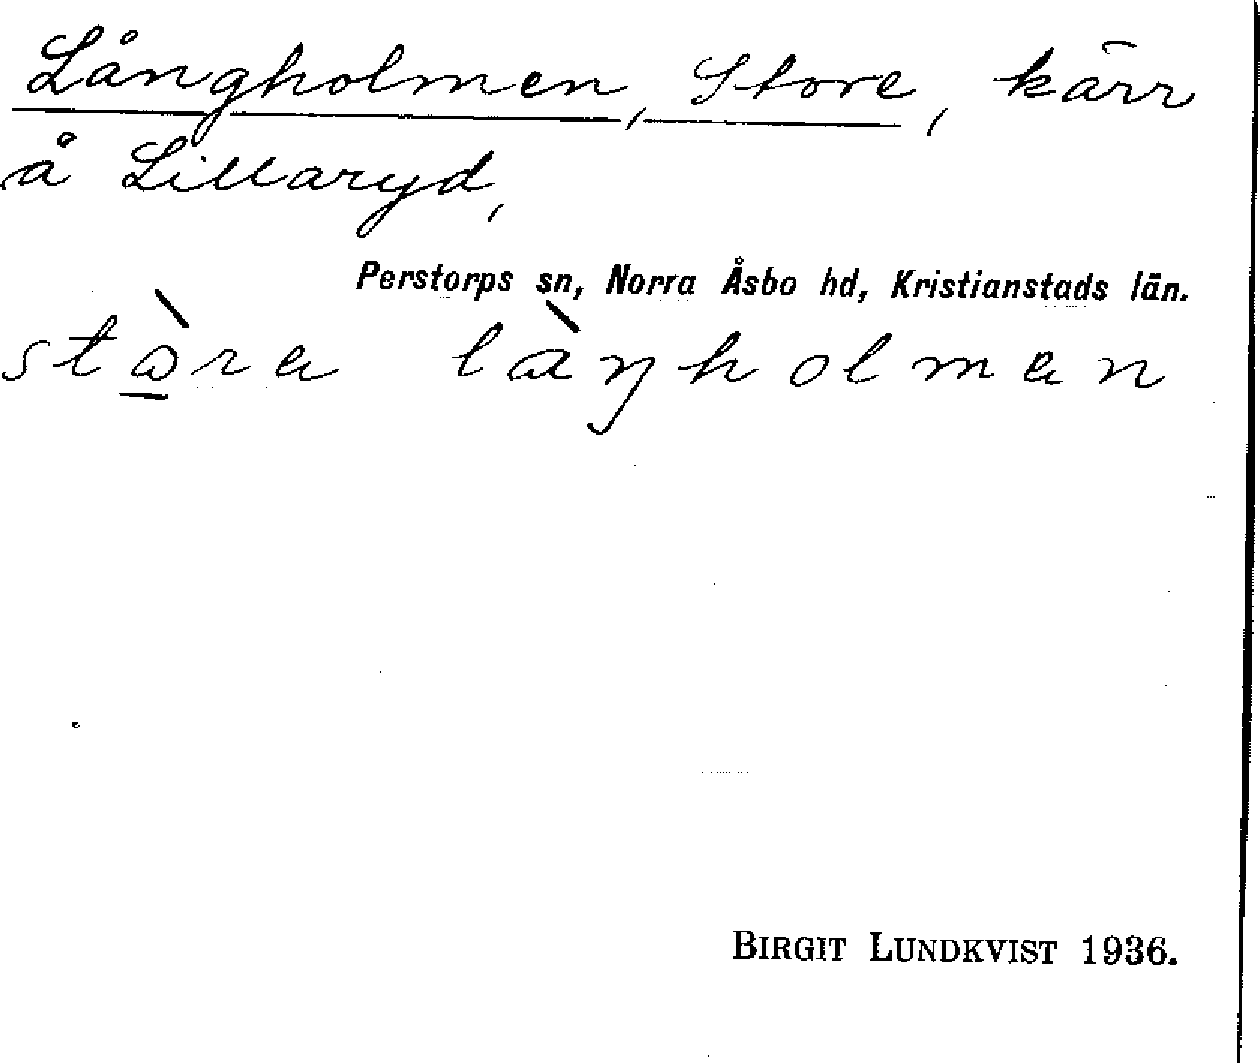 Långholmen, Store, kärr
å Lillaryd,
Perstorps sn, Norra Åsbo hd, Kristianstads län.
stò̠ra làŋholmen
BIRGIT LUNDKVIST 1936.